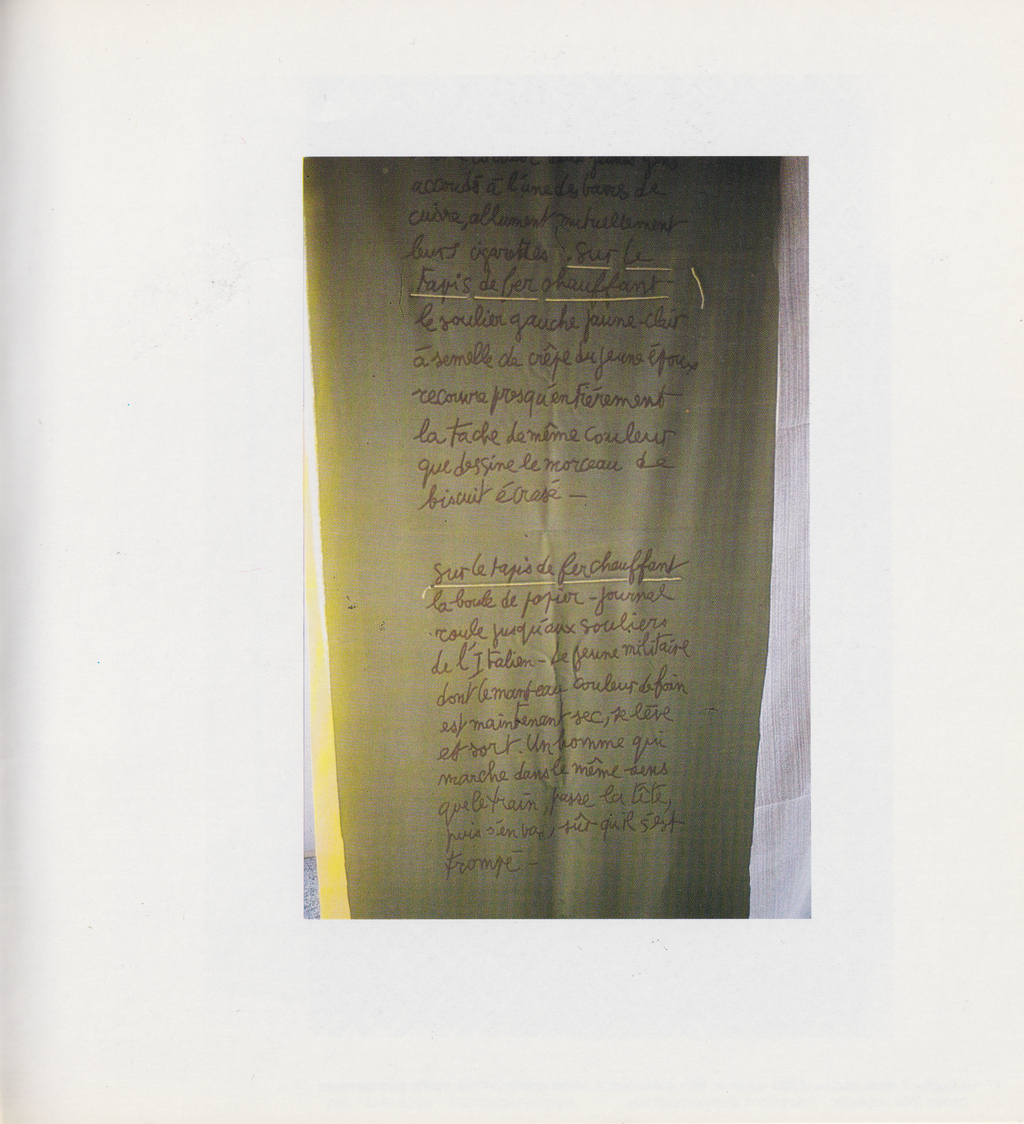 deux jeunes gens
accoudé à l'une des barres de
cuivre, allument mutuellement
leurs cigarettes. Sur le
tapis de fer chauffant
le soulier gauche jaune-clair
à semelle de crêpe du jeune époux
recouvre presqu'entièrement
la tache de même couleur
que dessine le morceau de
biscuit écrasé —
sur le tapis de fer chauffant
la boule de papier-journal
roule jusqu'aux souliers
de l'Italien - Le jeune militaire
dont le manteau couleur de foin
est maintenant sec, se lève
et sort. Un homme qui
marche dans le même sens
que le train, passe la tête,
puis s'en va, sûr qu'il s'est
trompé -